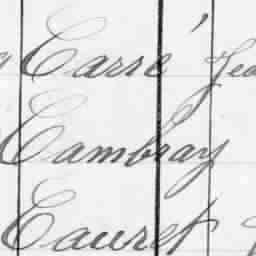 Carré Jea
Cambray
Cauret